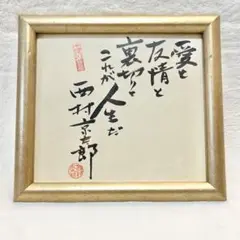 愛と
友情と
裏切りと
これが
人生だ
西村京太郎